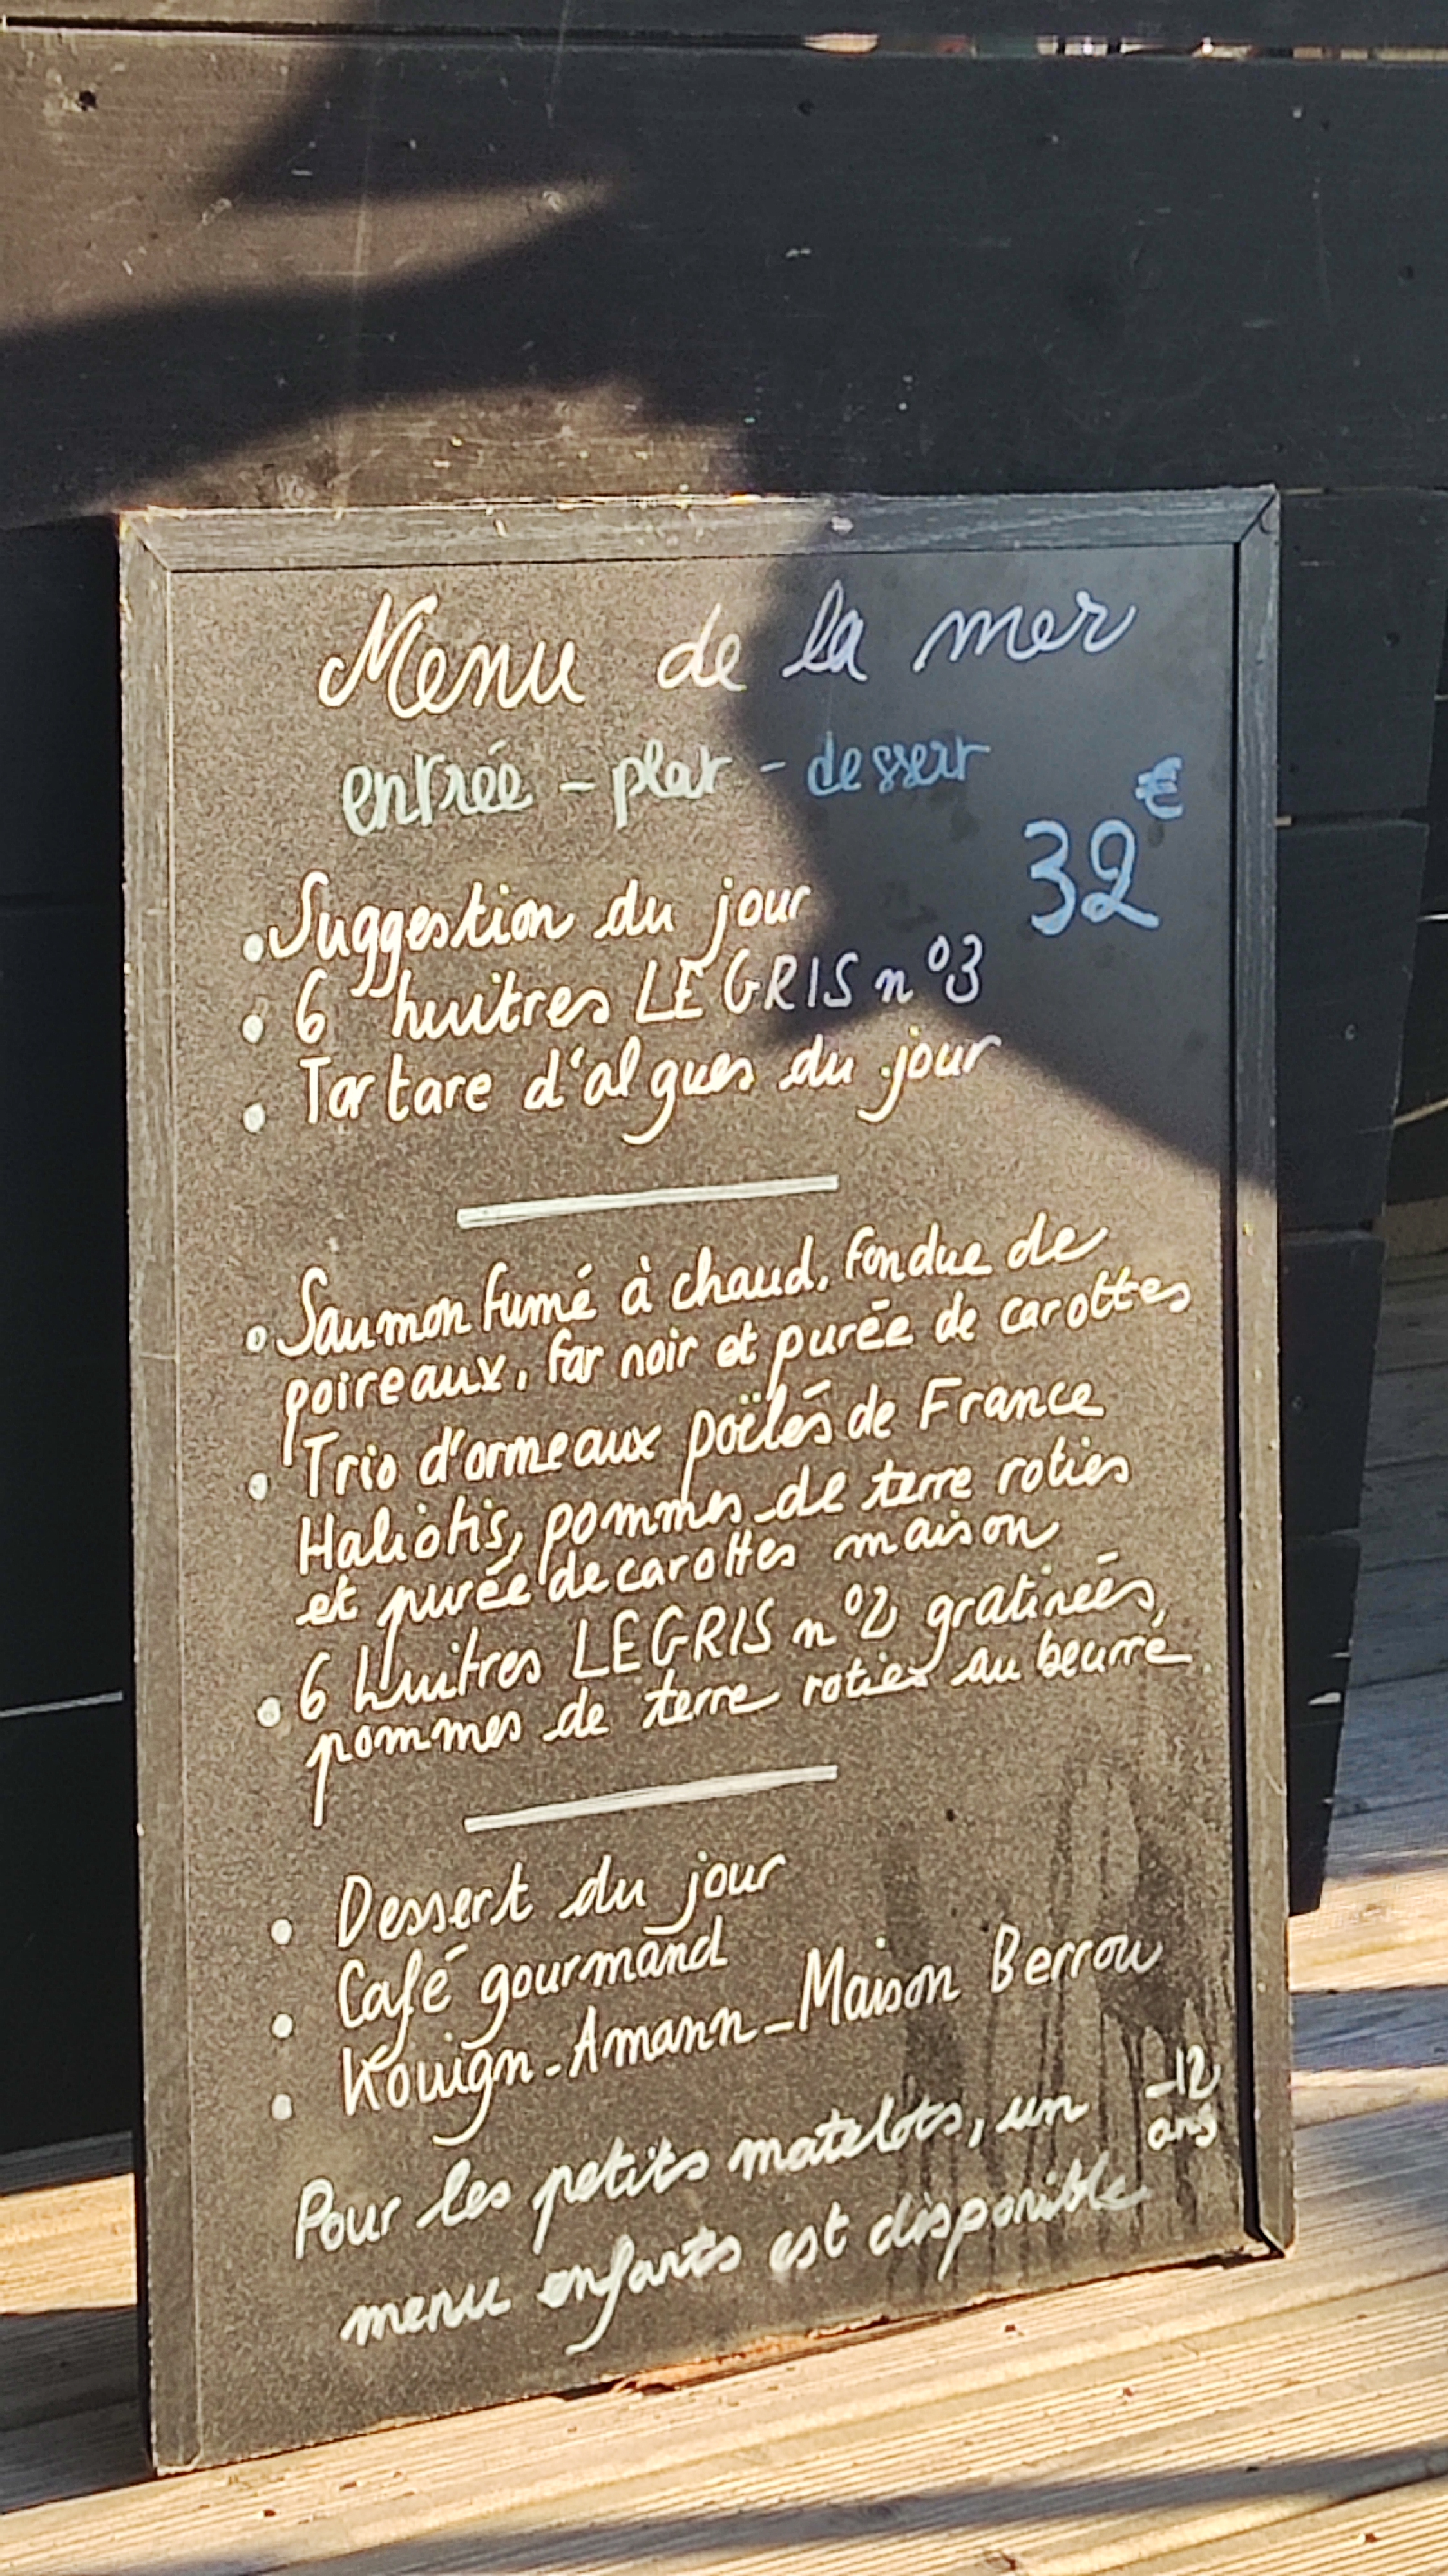 Menu de la mer
entrée - plat - dessert
32€
• Suggestion du jour
• 6 huitres LEGRIS n°3
• Tartare d'algues du jour
• Saumon fumé à chaud, fondue de
poireaux, far noir et purée de carottes
• Trio d'ormeaux poëlés de France
Haliotis, pommes de terre roties
et purée de carottes maison
• 6 huitres LEGRIS n°2 gratinées,
pommes de terre roties au beurre
• Dessert du jour
• Café gourmand
• Kouign-Amann - Maison Berrou
Pour les petits matelots, un -12 ans
menu enfants est disponible